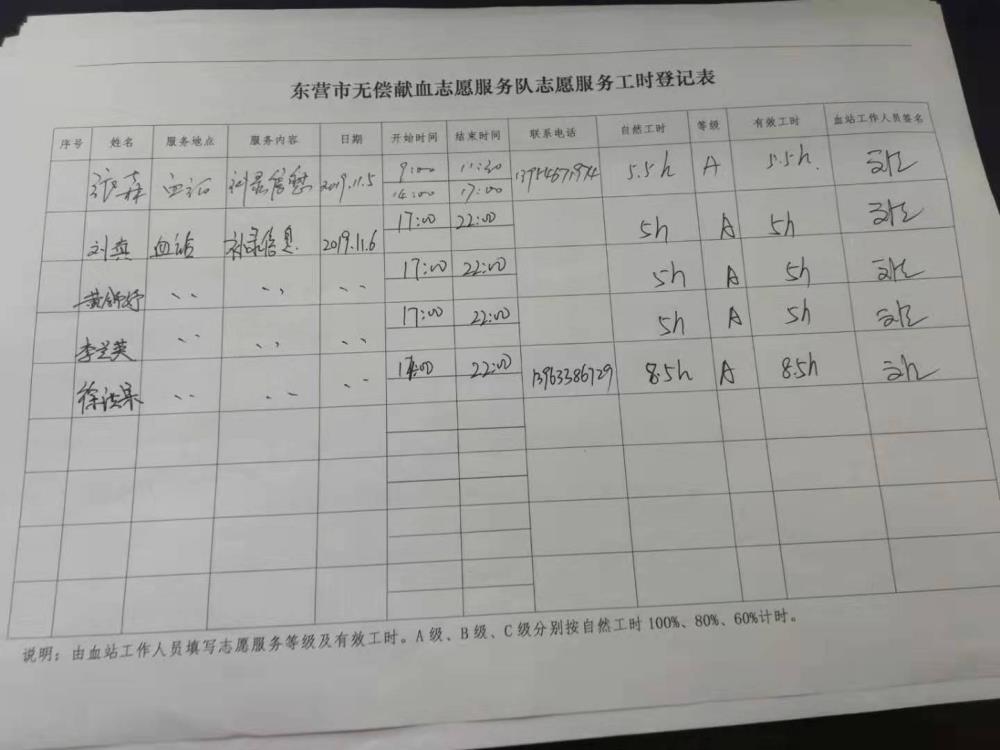 东营市无偿献血志愿服务队志愿服务工时登记表
序号 姓名 服务地点 服务内容 日期 开始时间 结束时间 联系电话 自然工时 等级 有效工时 血站工作人员签名
张森 血站 补录信息 2019.11.5 9:00 11:30 5.5h A 5.5h.
14:00 17:00
刘燕 血站 补录信息 2019.11.6 17:00 22:00 5h A 5h
17:00 22:00 5h A 5h
李兰英 17:00 22:00 5h A 5h
22:00 13963386729 8.5h A 8.5h
说明：由血站工作人员填写志愿服务等级及有效工时。A 级、B 级、C 级分别按自然工时 100%、80%、60%计时。